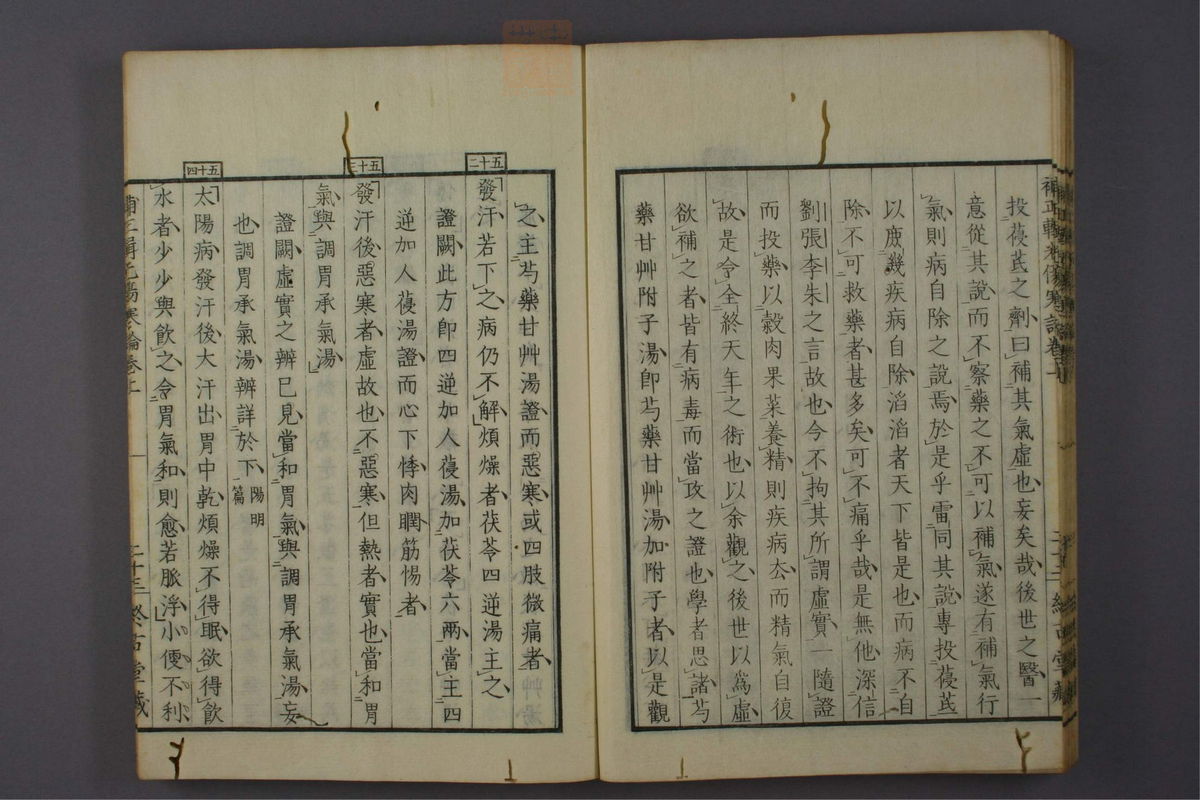 投葠芪之劑曰補其氣虛也妄矣哉後世之醫一
意從其說而不察藥之不可以補氣遂有補氣行
氣則病自除之說焉於是乎雷同其說專投葠芪
以庶幾疾病自除滔滔者天下皆是也而病不自
除不可救藥者甚多矣可不痛乎哉是無他深信
劉張李朱之言故也今不拘其所謂虛實一隨證
而投藥以穀肉果菜養精則疾病厺而精氣自復
故是令全終天年之術也以余觀之後世以爲虛
欲補之者皆有病毒而當攻之證也學者思諸芍
藥甘艸附子湯卽芍藥甘艸湯加附子者以是觀
之主芍藥甘艸湯證而惡寒或四肢微痛者
五十二
發汗若下之病仍不解煩燥者茯苓四逆湯主之
證闕此方卽四逆加人葠湯加茯苓六兩當主四
逆加人葠湯證而心下悸肉瞤筋惕者
五十三
發汗後惡寒者虛故也不惡寒但熱者實也當和胃
氣與調胃承氣湯
證闕虛實之辨已見當和胃氣與調胃承氣湯妄
也調胃承氣湯辨詳於下陽明篇
五十四
太陽病發汗後大汗出胃中乾煩燥不得眠欲得飮
水者少少與飮之令胃氣和則愈若脈浮小便不利
補正輯光傷寒論卷上
二十三
終古堂藏